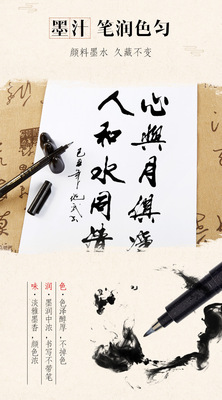 墨汁 笔润色匀
颜料墨水 久藏不变
心與月俱深
人和水同情
色 色泽醇厚 不掉色
润 墨润中浓 书写不带笔
味 淡雅墨香 颜色浓